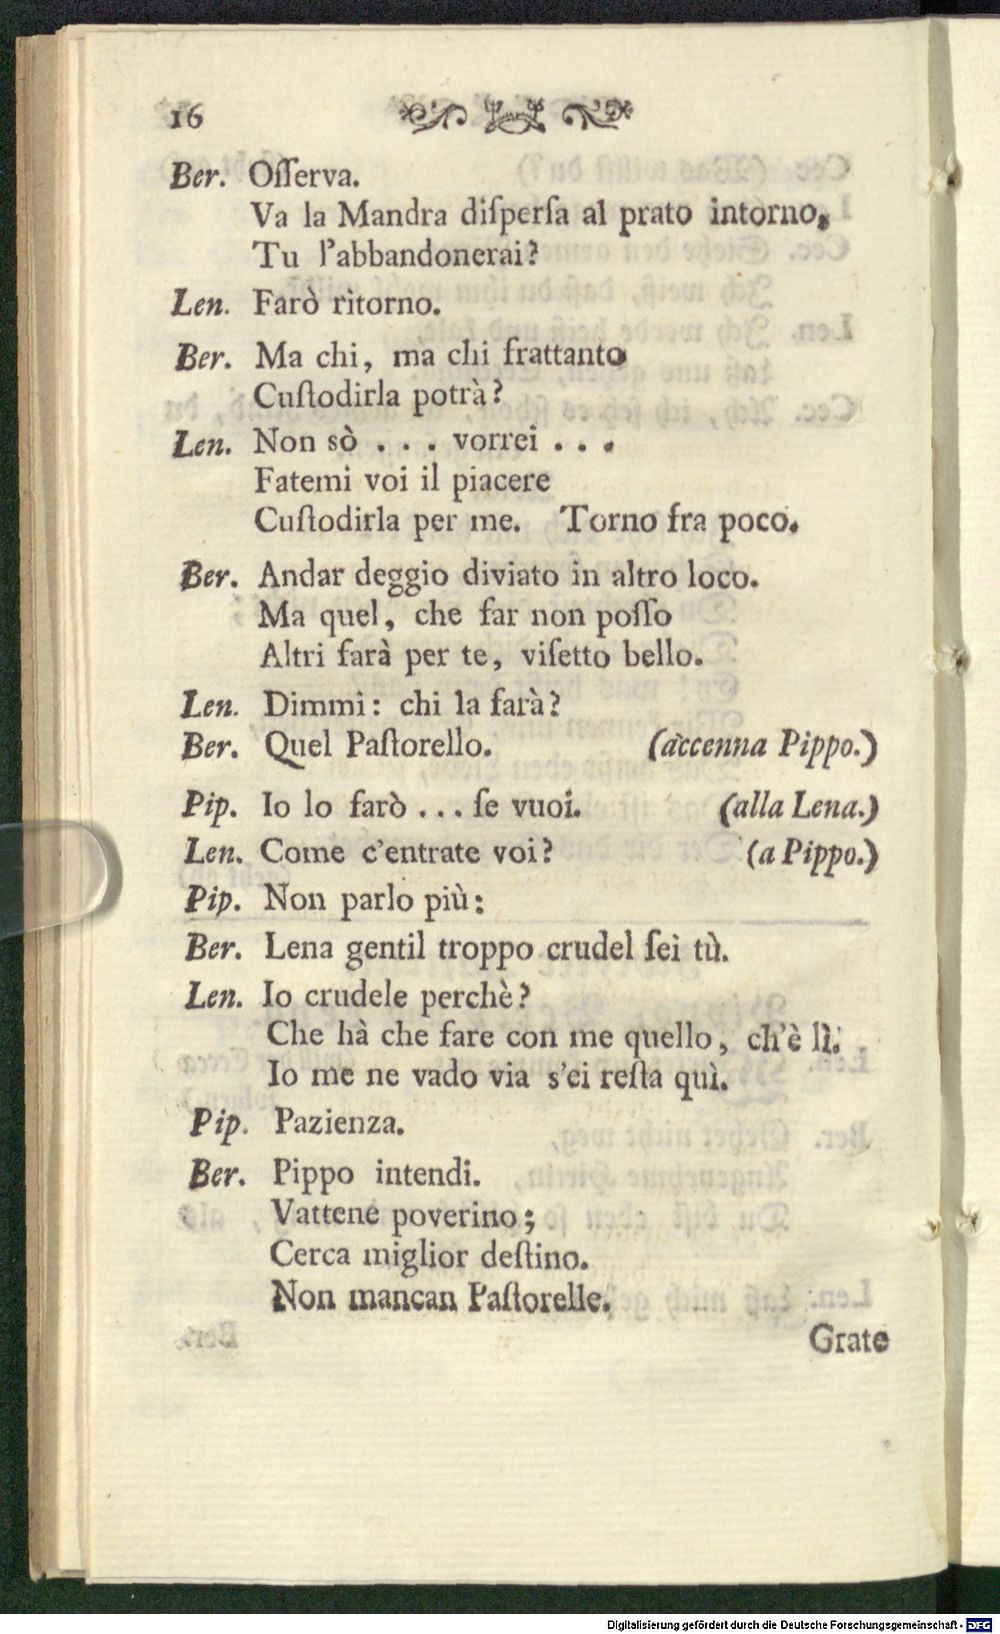 16
Ber. Oſſerva.
Va la Mandra diſperſa al prato intorno,
Tu l'abbandonerai?
Len. Farò ritorno.
Ber. Ma chi, ma chi frattanto
Cuſtodirla potrà?
Len. Non sò . . . vorrei . . .
Fatemi voi il piacere
Cuſtodirla per me. Torno fra poco.
Ber. Andar deggio diviato in altro loco.
Ma quel, che far non poſſo
Altri farà per te, viſetto bello.
Len. Dimmi: chi la farà?
Ber. Quel Paſtorello. (accenna Pippo.)
Pip. Io lo farò ... ſe vuoi. (alla Lena.)
Len. Come c'entrate voi? (a Pippo.)
Pip. Non parlo più:
Ber. Lena gentil troppo crudel ſei tù.
Len. Io crudele perchè?
Che hà che fare con me quello, ch'è lì.
Io me ne vado via s'ei reſta quì.
Pip. Pazienza.
Ber. Pippo intendi.
Vattene poverino;
Cerca miglior deſtino.
Non mancan Paſtorelle.
Grate
Digitalisierung gefördert durch die Deutsche Forschungsgemeinschaft - DFG